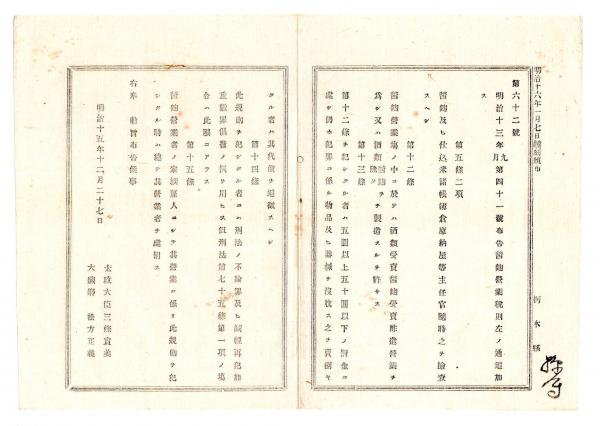 明治十六年一月七日
栃木縣
第六十二號
明治十三年九月第四十一號布告醤麹營業税則左ノ通追加
ス
第五條二項
醤麹及ヒ仕込米諸帳簿倉庫納屋等主任官隨時之ヲ檢査
スヘシ
第十二條
醤麹營業場ノ中ニ於テハ酒類受賣醤麹受賣酢造營業ヲ
爲シ又ハ酒類 ヲ製造スルヲ許サス
第十三條
第十二條ヲ犯シタル者ハ五圓以上五十圓以下ノ罰金ニ
處シ仍ホ犯罪ニ係ル物品及ヒ器械ヲ沒收ス之ヲ賣捌キ
タル者ハ其代價ヲ追徴スヘシ
第十四條
此規則ヲ犯シタル者ニハ刑法ノ不論罪及ヒ減輕再犯加
重數罪俱發ノ例ヲ用ヒス但刑法第七十五條第一項ノ場
合ハ此限ニアラス
第十五條
醤麹營業者ノ家族雇人ニシテ其營業ニ係リ此規則ヲ犯
シタル時ハ總テ其營業者ヲ處罰ス
右奉 勅旨布告候事
明治十五年十二月二十七日
太政大臣三條實美
大藏卿 松方正義